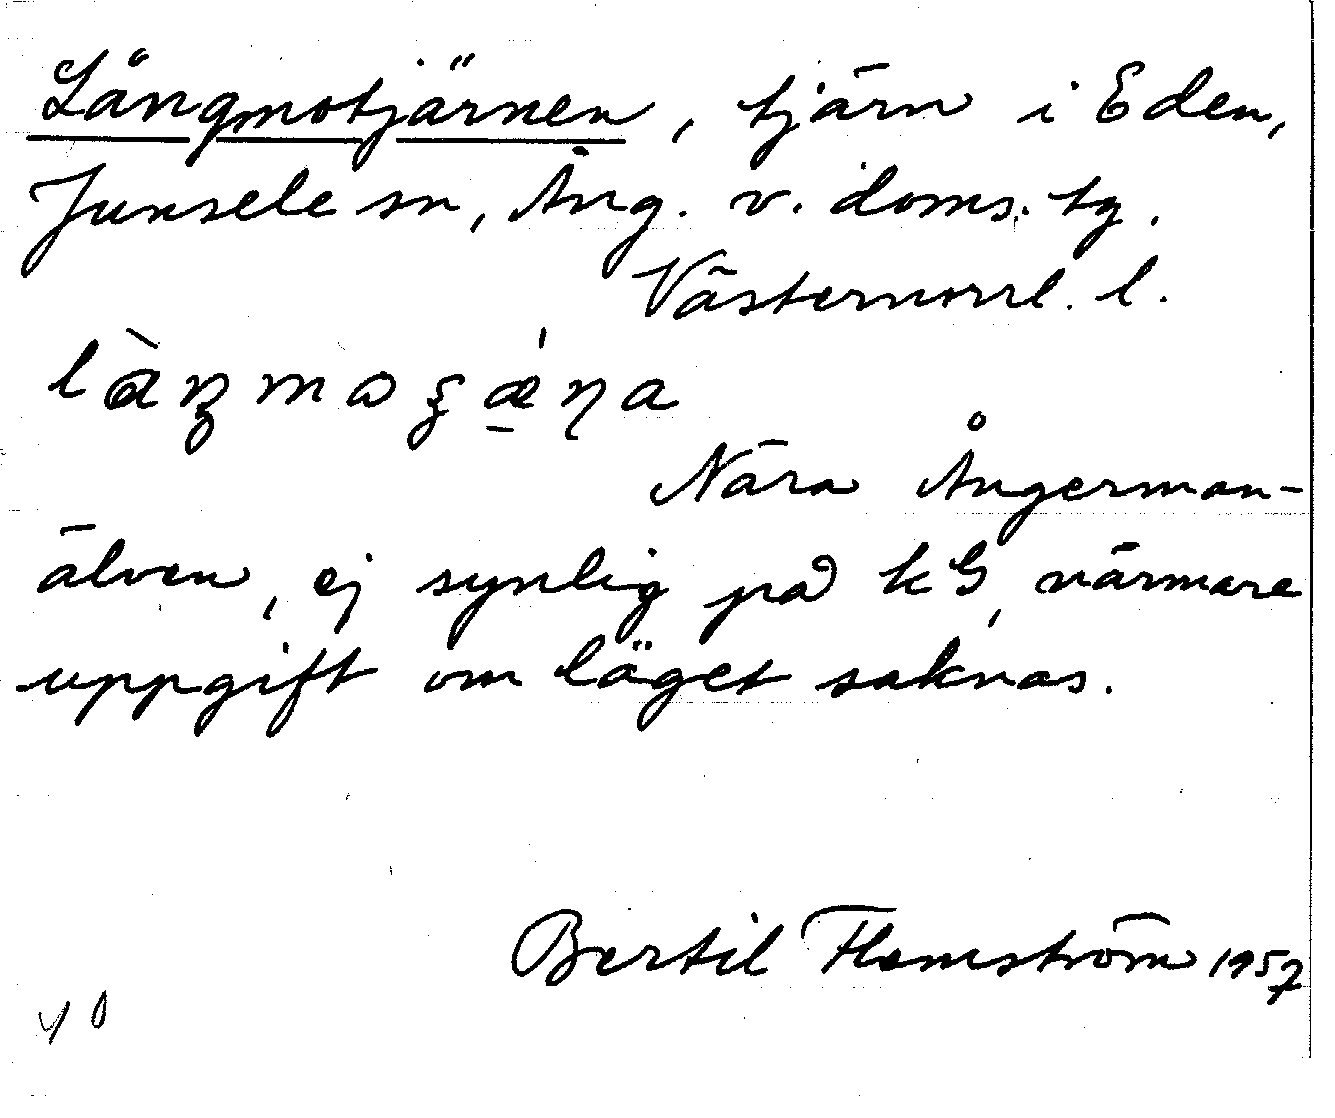 Långmotjärnen, tjärn i Eden,
Junsele sn, Ång. v. doms. tg.
Västernorrl. l.
Nära Ångerman-
älven, ej synlig på kG, närmare
uppgift om läget saknas.
Bertil Flemström 1957